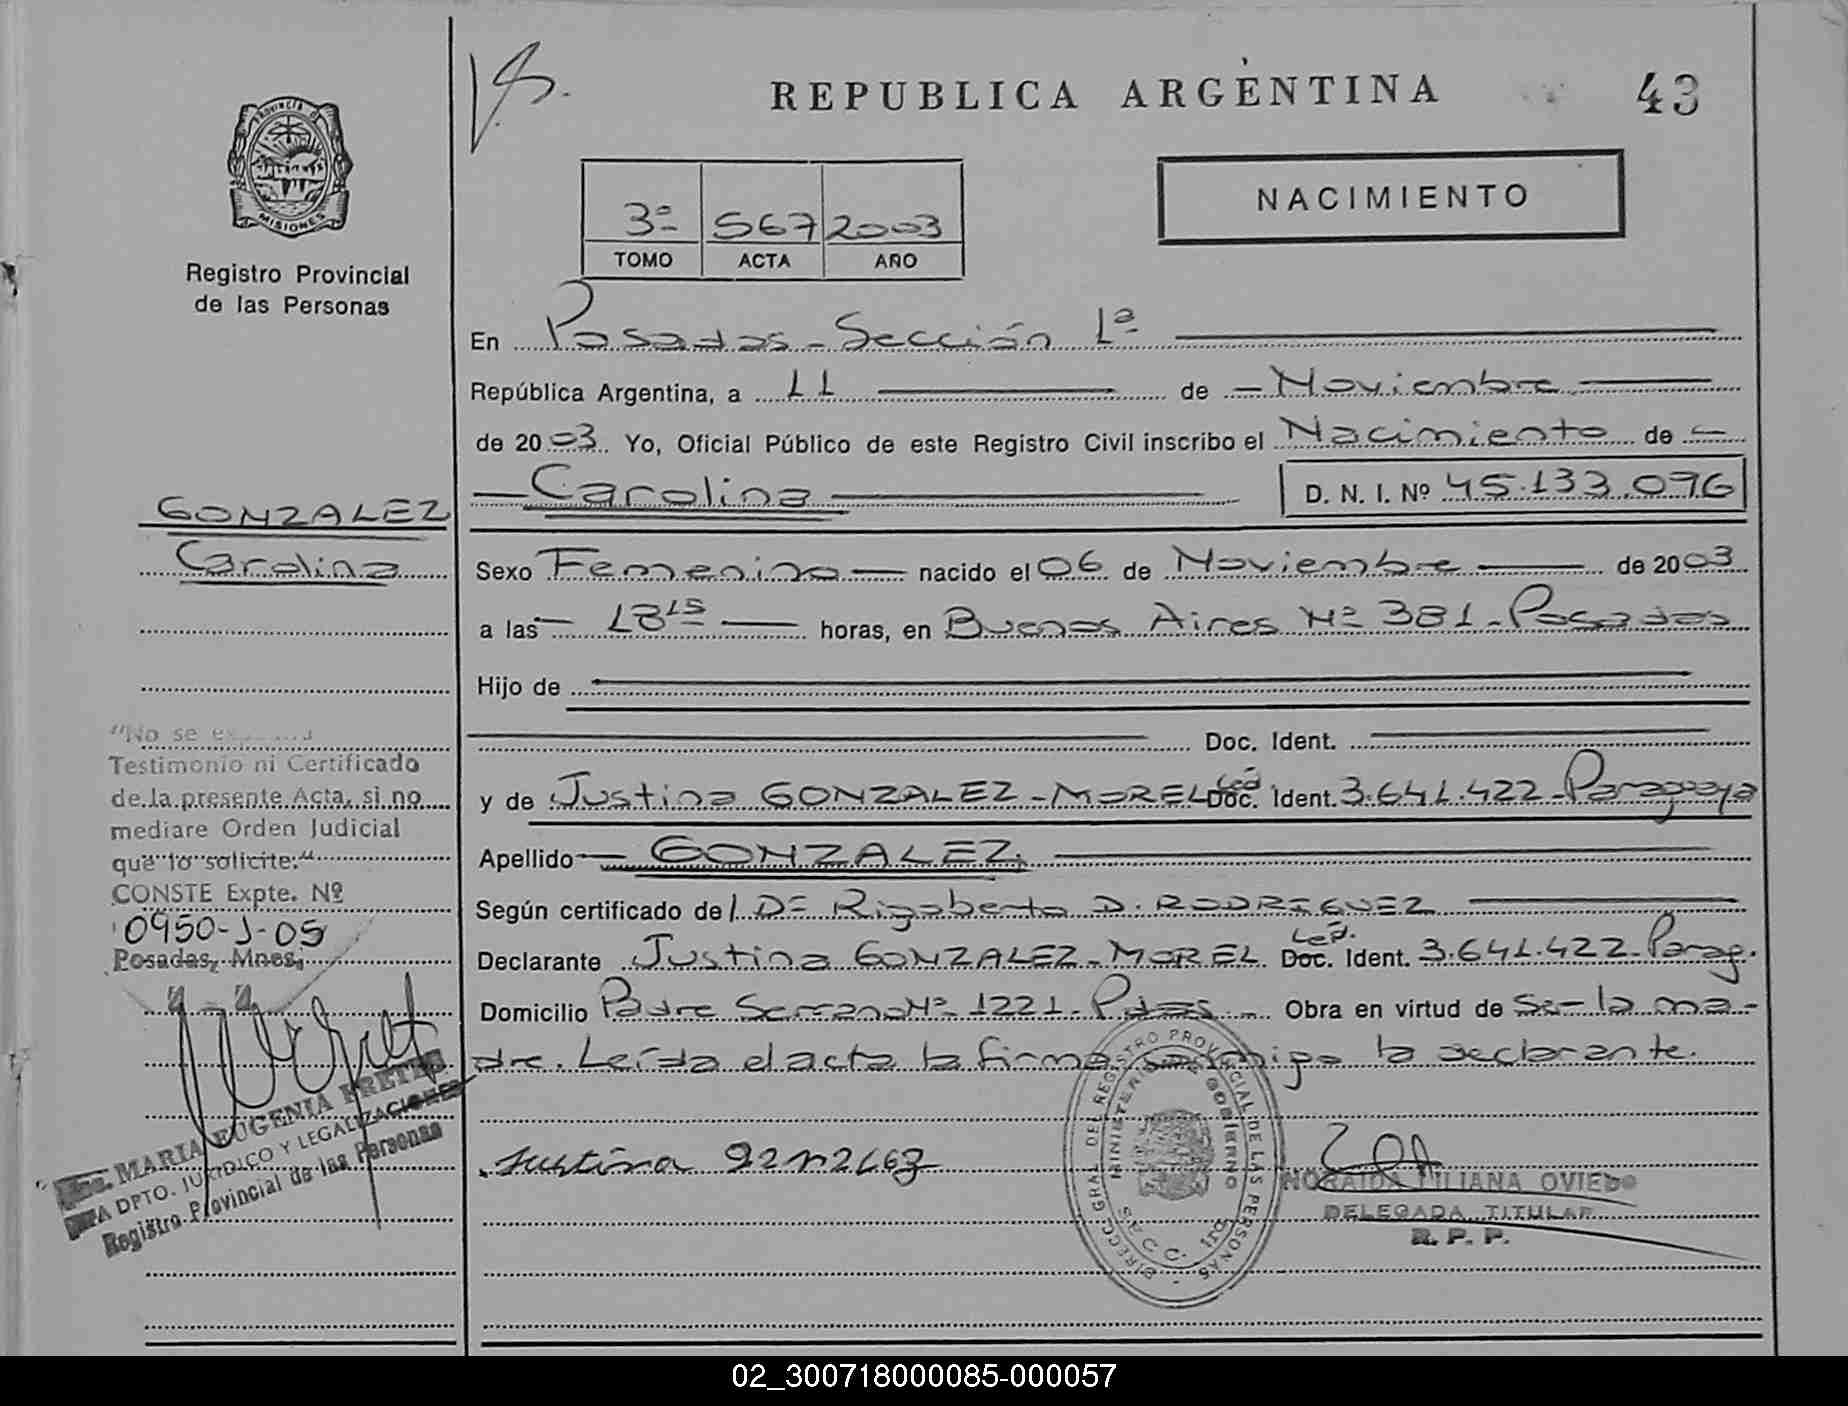 REPUBLICA ARGENTINA
43
PROVINCIA DE
MISIONES
Registro Provincial
de las Personas
3º 567 2003
TOMO ACTA AÑO
NACIMIENTO
En Posadas - Sección 1ª
República Argentina, a 11 de Noviembre
de 2003. Yo, Oficial Público de este Registro Civil inscribo el Nacimiento de
Carolina
D. N. I. Nº 45.133.096
GONZALEZ
Carolina
Sexo Femenino nacido el 06 de Noviembre de 2003
a las 18 15 horas, en Buenos Aires Nº 381 - Posadas
Hijo de
Doc. Ident.
y de Justina GONZALEZ - MOREL Ced. Doc. Ident. 3.641.422 - Paraguaya
Apellido GONZALEZ.
Según certificado del Dr Rigoberto D. RODRIGUEZ
Declarante Justina GONZALEZ - MOREL Ced. Doc. Ident. 3.641.422 - Parag.
Domicilio Padre Serrano Nº 1221 - Pdas. Obra en virtud de Ser la ma-
dre. Leída el acta la firma conmigo la declarante.
"No se
Testimonio ni Certificado
de la presente Acta, si no
mediare Orden Judicial
que lo solicite."
CONSTE Expte. Nº
0950-J-05
Posadas, Mnes,
MARIA EUGENIA PRETES
DPTO. JURIDICO Y LEGALIZACIONES
Registro Provincial de las Personas
Justina
DIRECC. GRAL. DEL REGISTRO PROVINCIAL DE LAS PERSONAS
MINISTERIO DE GOBIERNO
NORAIDA LILIANA OVIEDO
DELEGADA TITULAR
R. P. P.
02_300718000085-000057